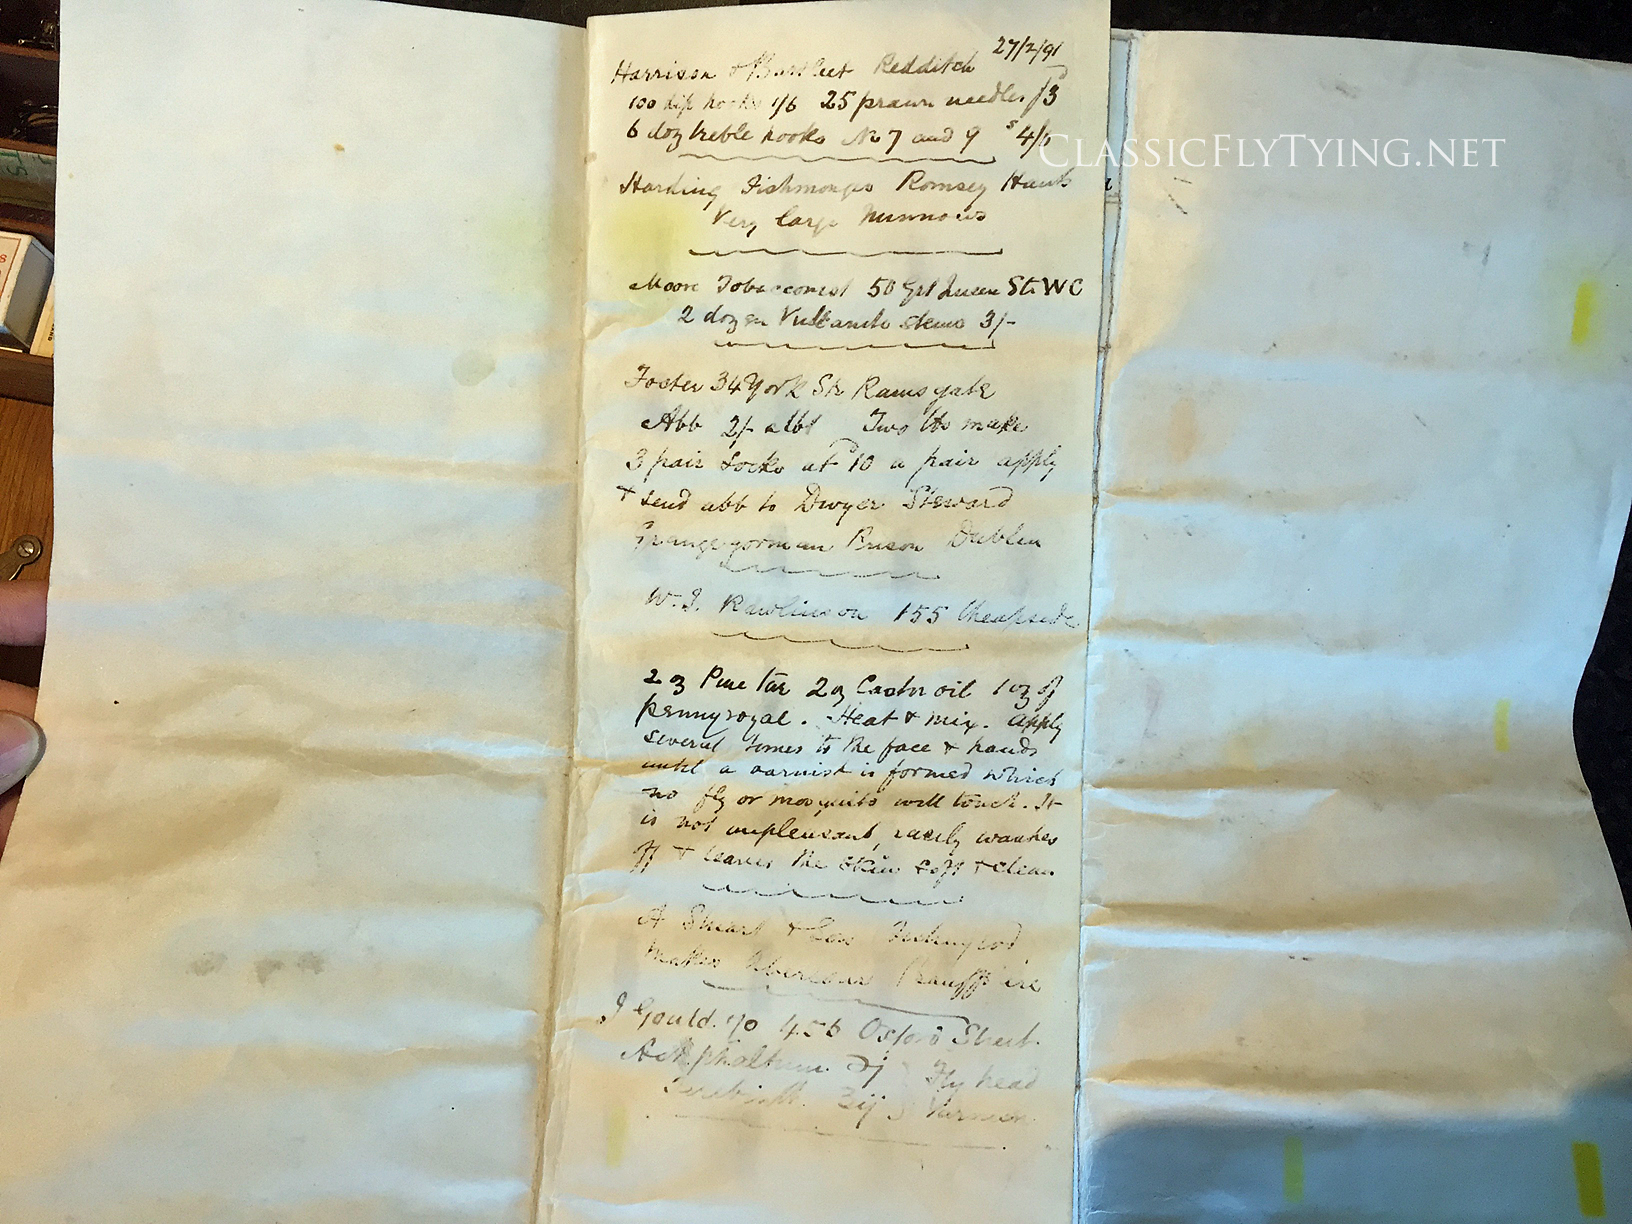 27/2/91
Harrison & Bartleet Redditch
100 lip hooks 1/6 25 prawn needles /3
6 doz treble hooks No 7 and 9 s 4/6
CLASSICFLYTYING.NET
Harding Fishmonger Romsey Hants
Very large Minnows
Moore Tobacconist 50 Grt Queen St. WC
2 dozen Vulcanite stems 3/-
Foster 34 York St Ramsgate
Abb 2/- a lbt Two lbs make
3 pair socks at 10 a pair apply
& send abb to Dwyer Steward
Grangegorman Prison Dublin
W. J. Rawlinson 155 Cheapside
2 oz Pine tar 2 oz Castor oil 1 oz of
pennyroyal. Heat & mix. Apply
several times to the face & hands
until a varnish is formed which
no fly or mosquito will touch. It
is not unpleasant, easily washes
off & leaves the skin soft & clean
A Smart & Son Fishing rod
Makers Aberlour Banffshire
J Gould. 456 Oxford Street.
Asphaltum Fly head